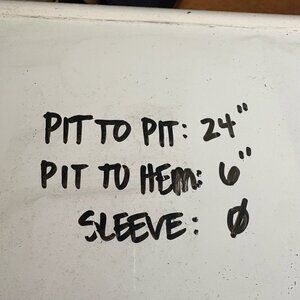 PIT TO PIT: 24"
PIT TO HEM: 6"
SLEEVE: Ø